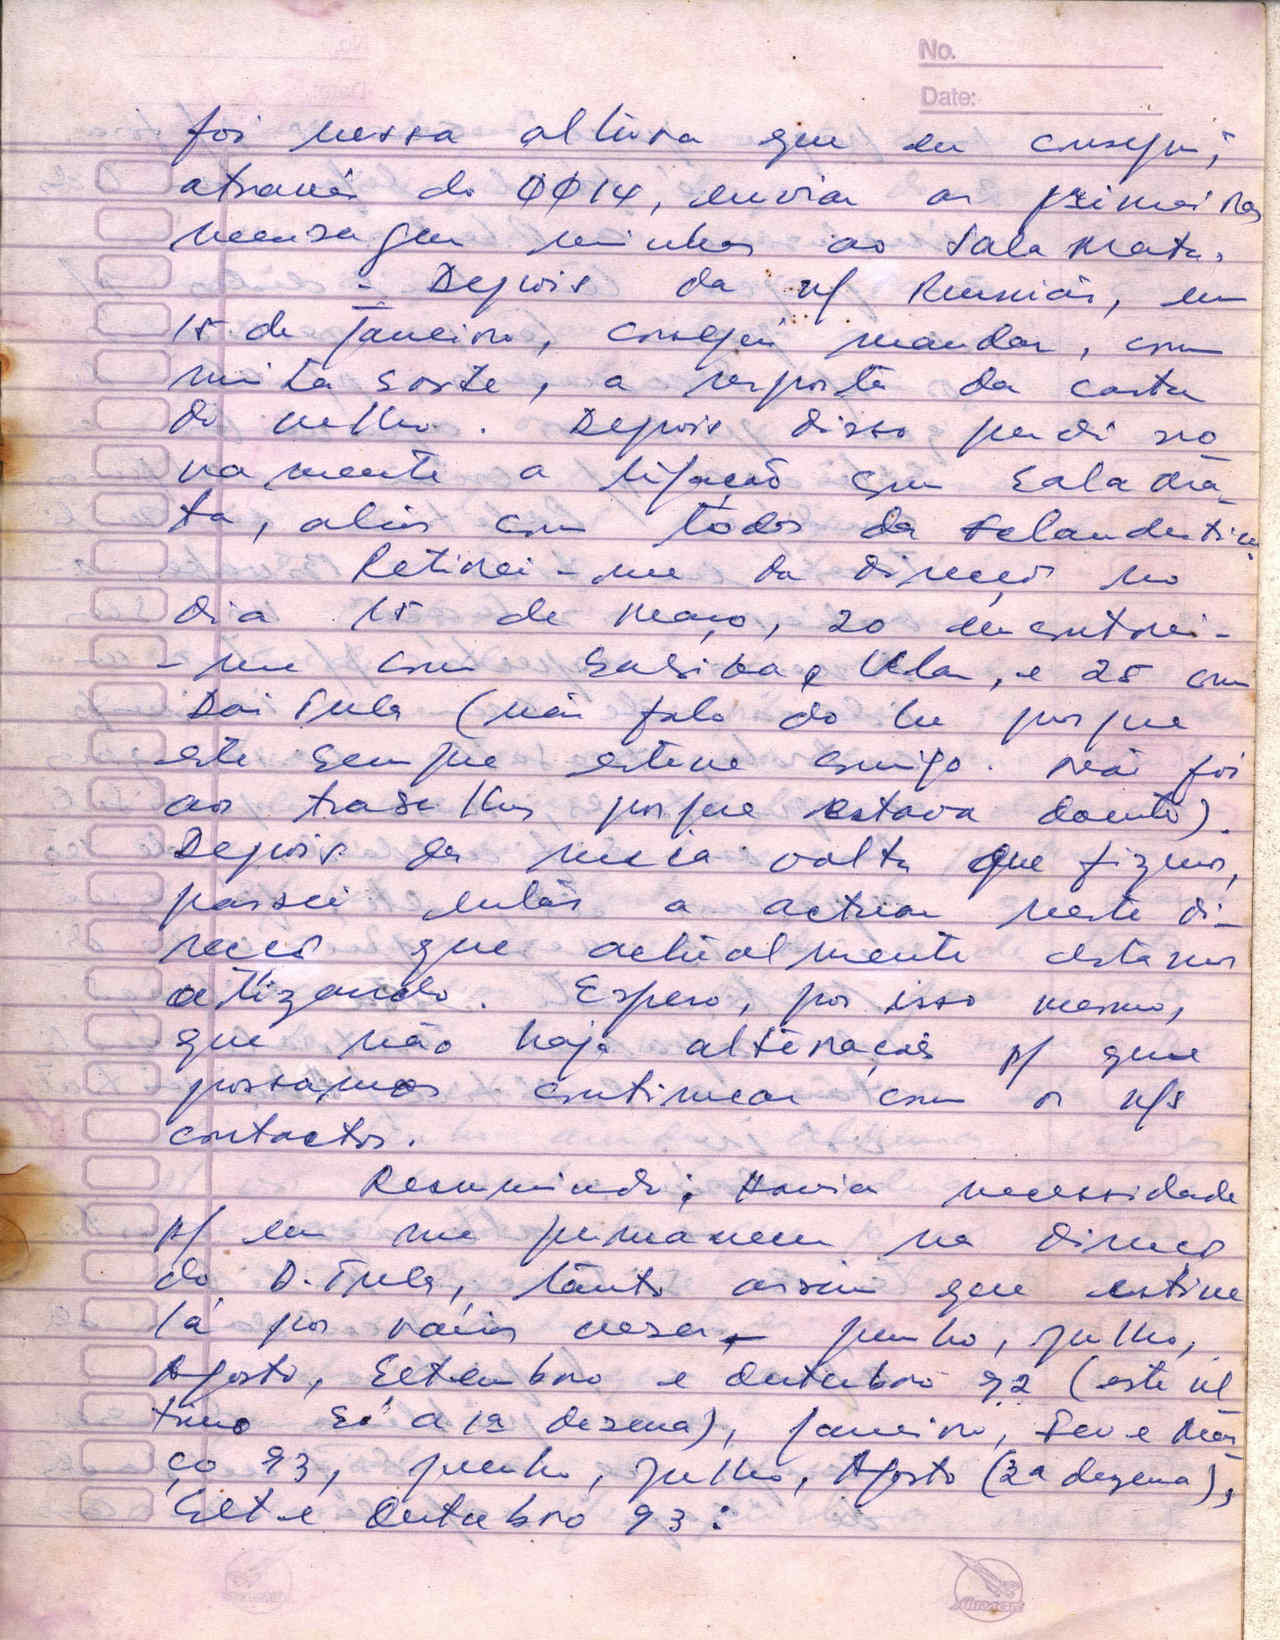 No.
Date:
foi nessa altura que eu consegui,
através do ØØ14, enviar as primeiras
mensagens minhas ao Sala Mata.
- Depois da n/ Reunião, em
15 de Janeiro, consegui mandar, com
mita sorte, a resposta da carta
do velho. Depois disso perdi no
vamente a ligação com Sala Ma-
ta, aliás com todos da clandestina
Retirei-me da direcção no
dia 15 de Março, 20 encontrei-
-me com Sabika e Ular, e 25 com
Dai Tula (não falo do Lu porque
este sempre esteve comigo. Não foi
ao trabalho porque estava doente).
Depois da meia volta que fizemos,
passei então a actuar nesta di-
recção que actualmente estamos
utilizando. Espero, por isso mesmo,
que não haja alterações p/ que
possamos continuar com os n/s
contactos.
Resumindo; Havia necessidade
p/ eu me permanecer na direcção
do D. Tula, tanto assim que estive
lá por vários meses - junho, julho,
Agosto, Setembro e Outubro 92 (este úl
timo só a 1ª dezena), Janeiro, Fev e Mar-
ço 93, junho, julho, Agosto (2a dezena),
Set e Outubro 93: